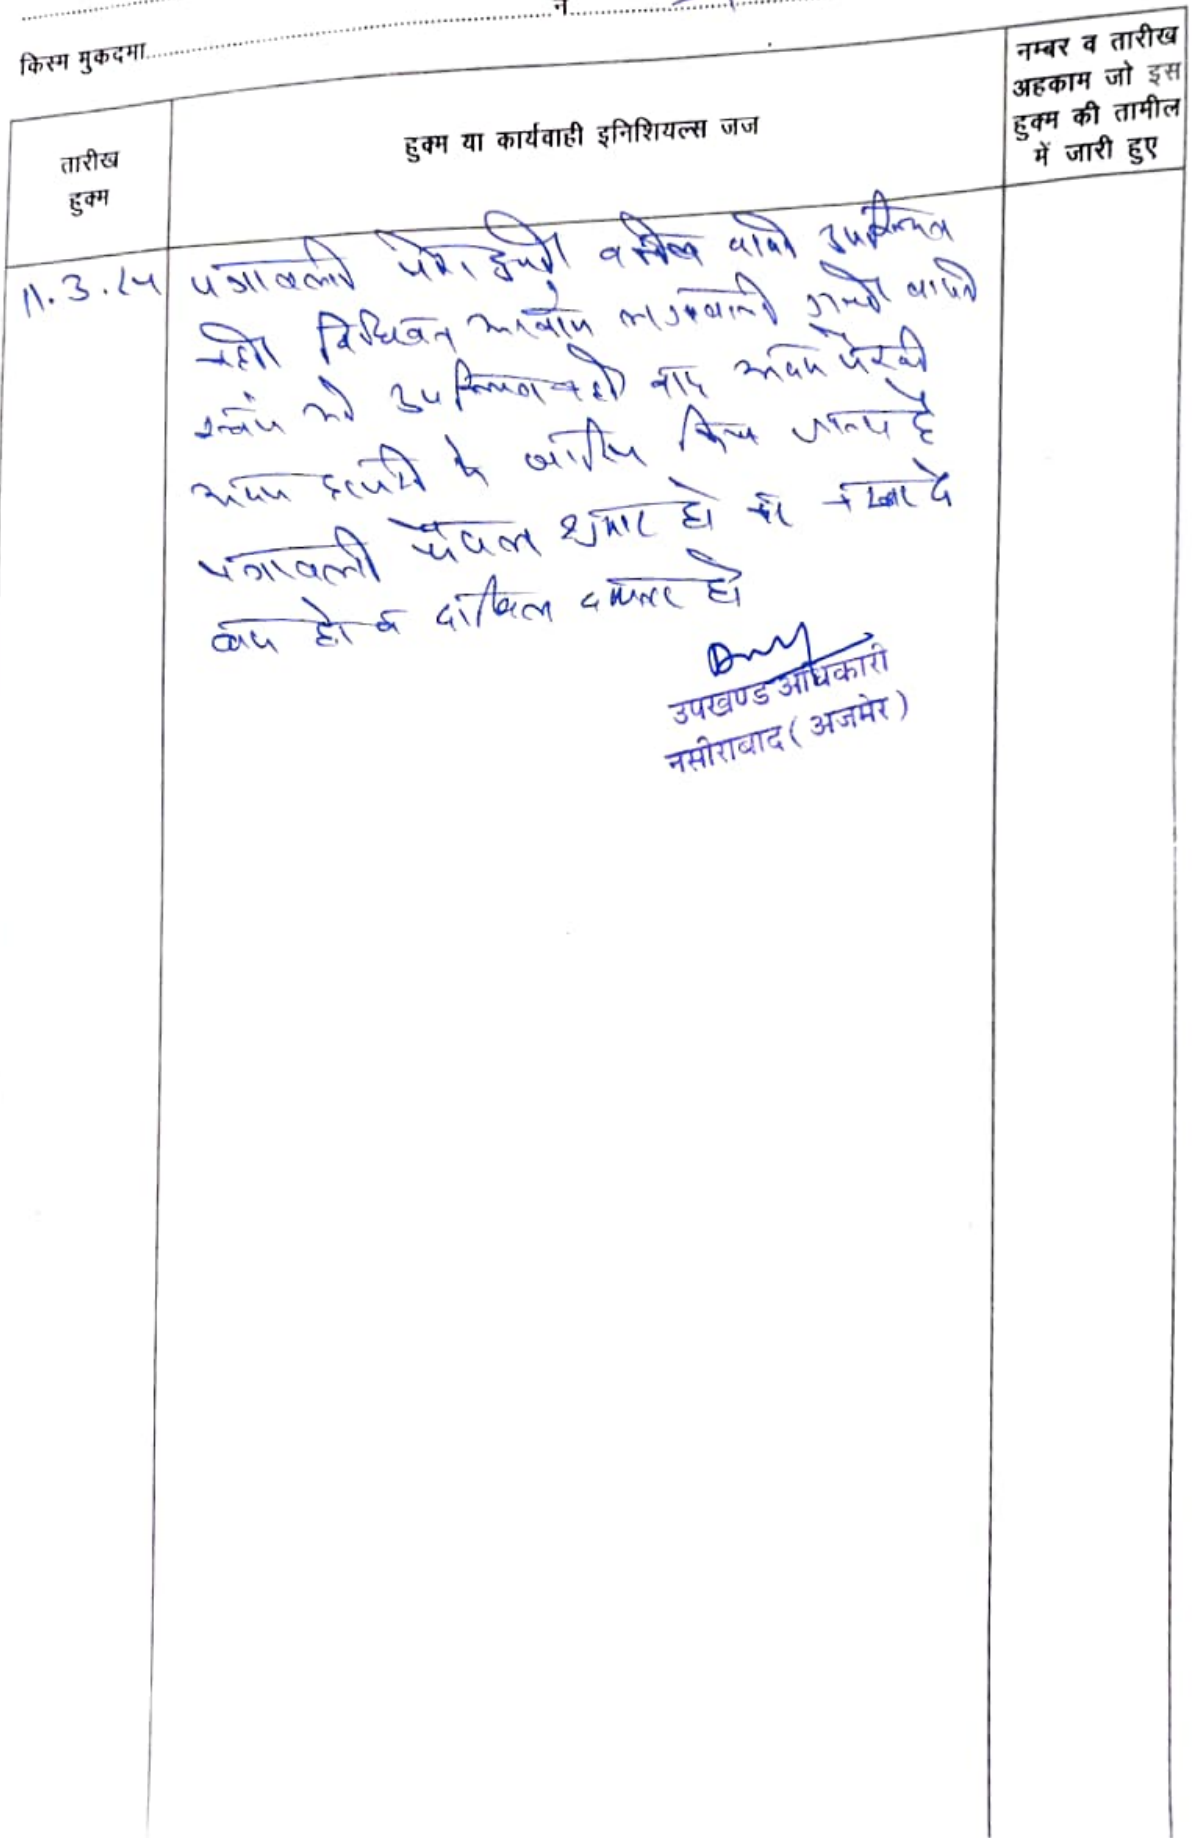 नं
किस्म मुकदमा
तारीख
हुक्म
हुक्म या कार्यवाही इनिशियल्स जज
नम्बर व तारीख
अहकाम जो इस
हुक्म की तामील
में जारी हुए
11.3.24 पत्रावली पेश हुयी वकील वादी उपस्थित
नही विधिवत आवाज लगवायी गयी वादी
स्वंय भी उपस्थित नही वाद अदम पैरवी
अदम हाजरी मे खारिज किया जाता है
पत्रावली फैसल शुमार हो कर नम्बर से
कम हो व दाखिल दफ्तर हो
उपखण्ड अधिकारी
नसीराबाद (अजमेर)